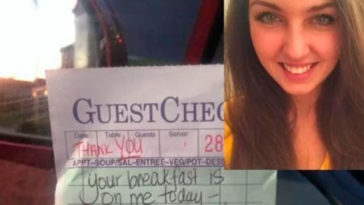 GUESTCHEC
Date Table Guests Server
THANK YOU 28
APPT-SOUP/SAL-ENTREE-VEG/POT-DES
your breakfast is
on me today -